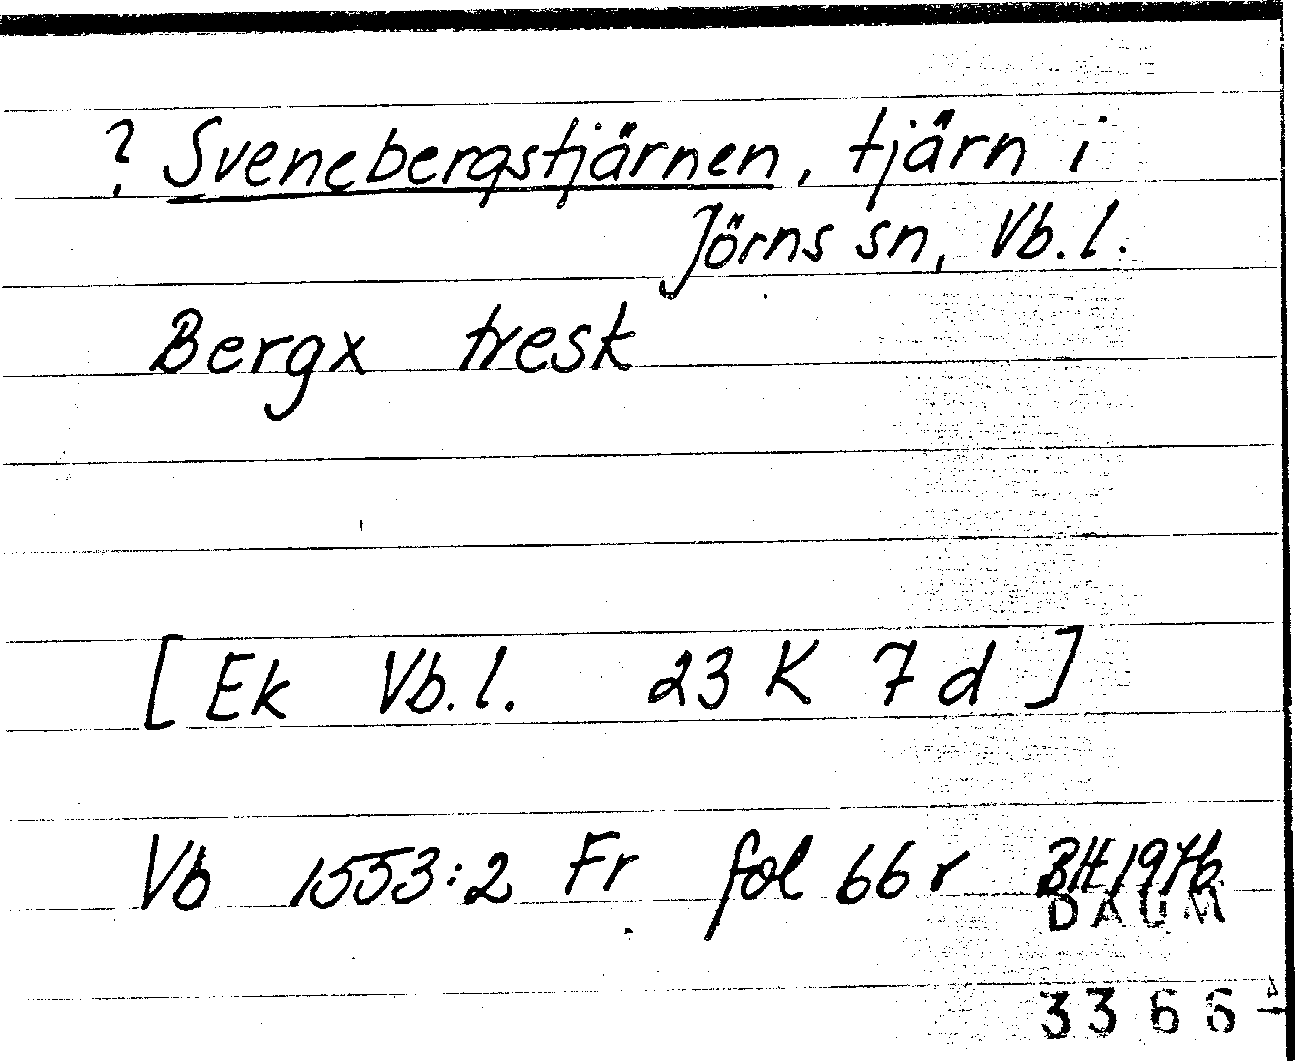 ? Svenebergstjärnen, tjärn i
Jörns sn, Vb.l.
Bergx tresk
[Ek Vb.l. 23 K 7 d]
Vb 1553:2 Fr fol 66 r BH 1976
DAUM
3366